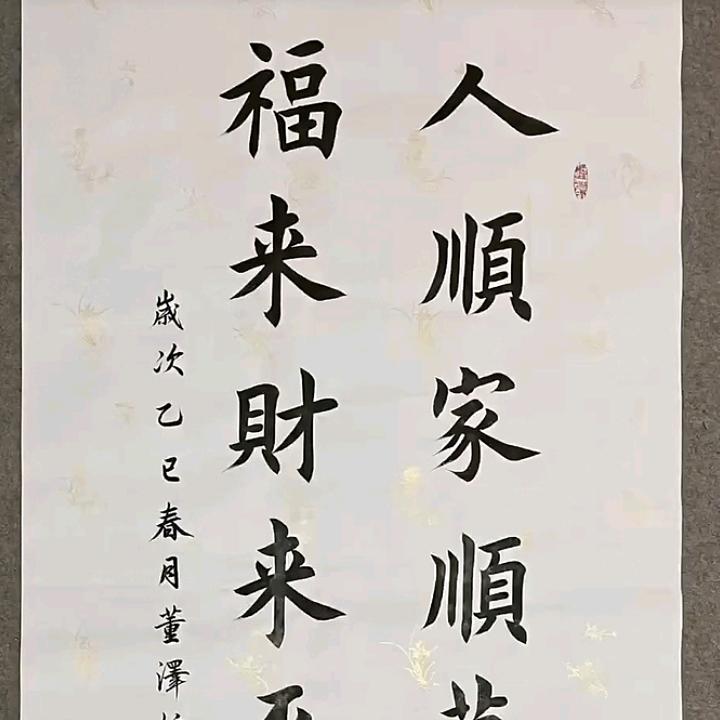 人順家順
福来財来
歳次乙巳春月董澤